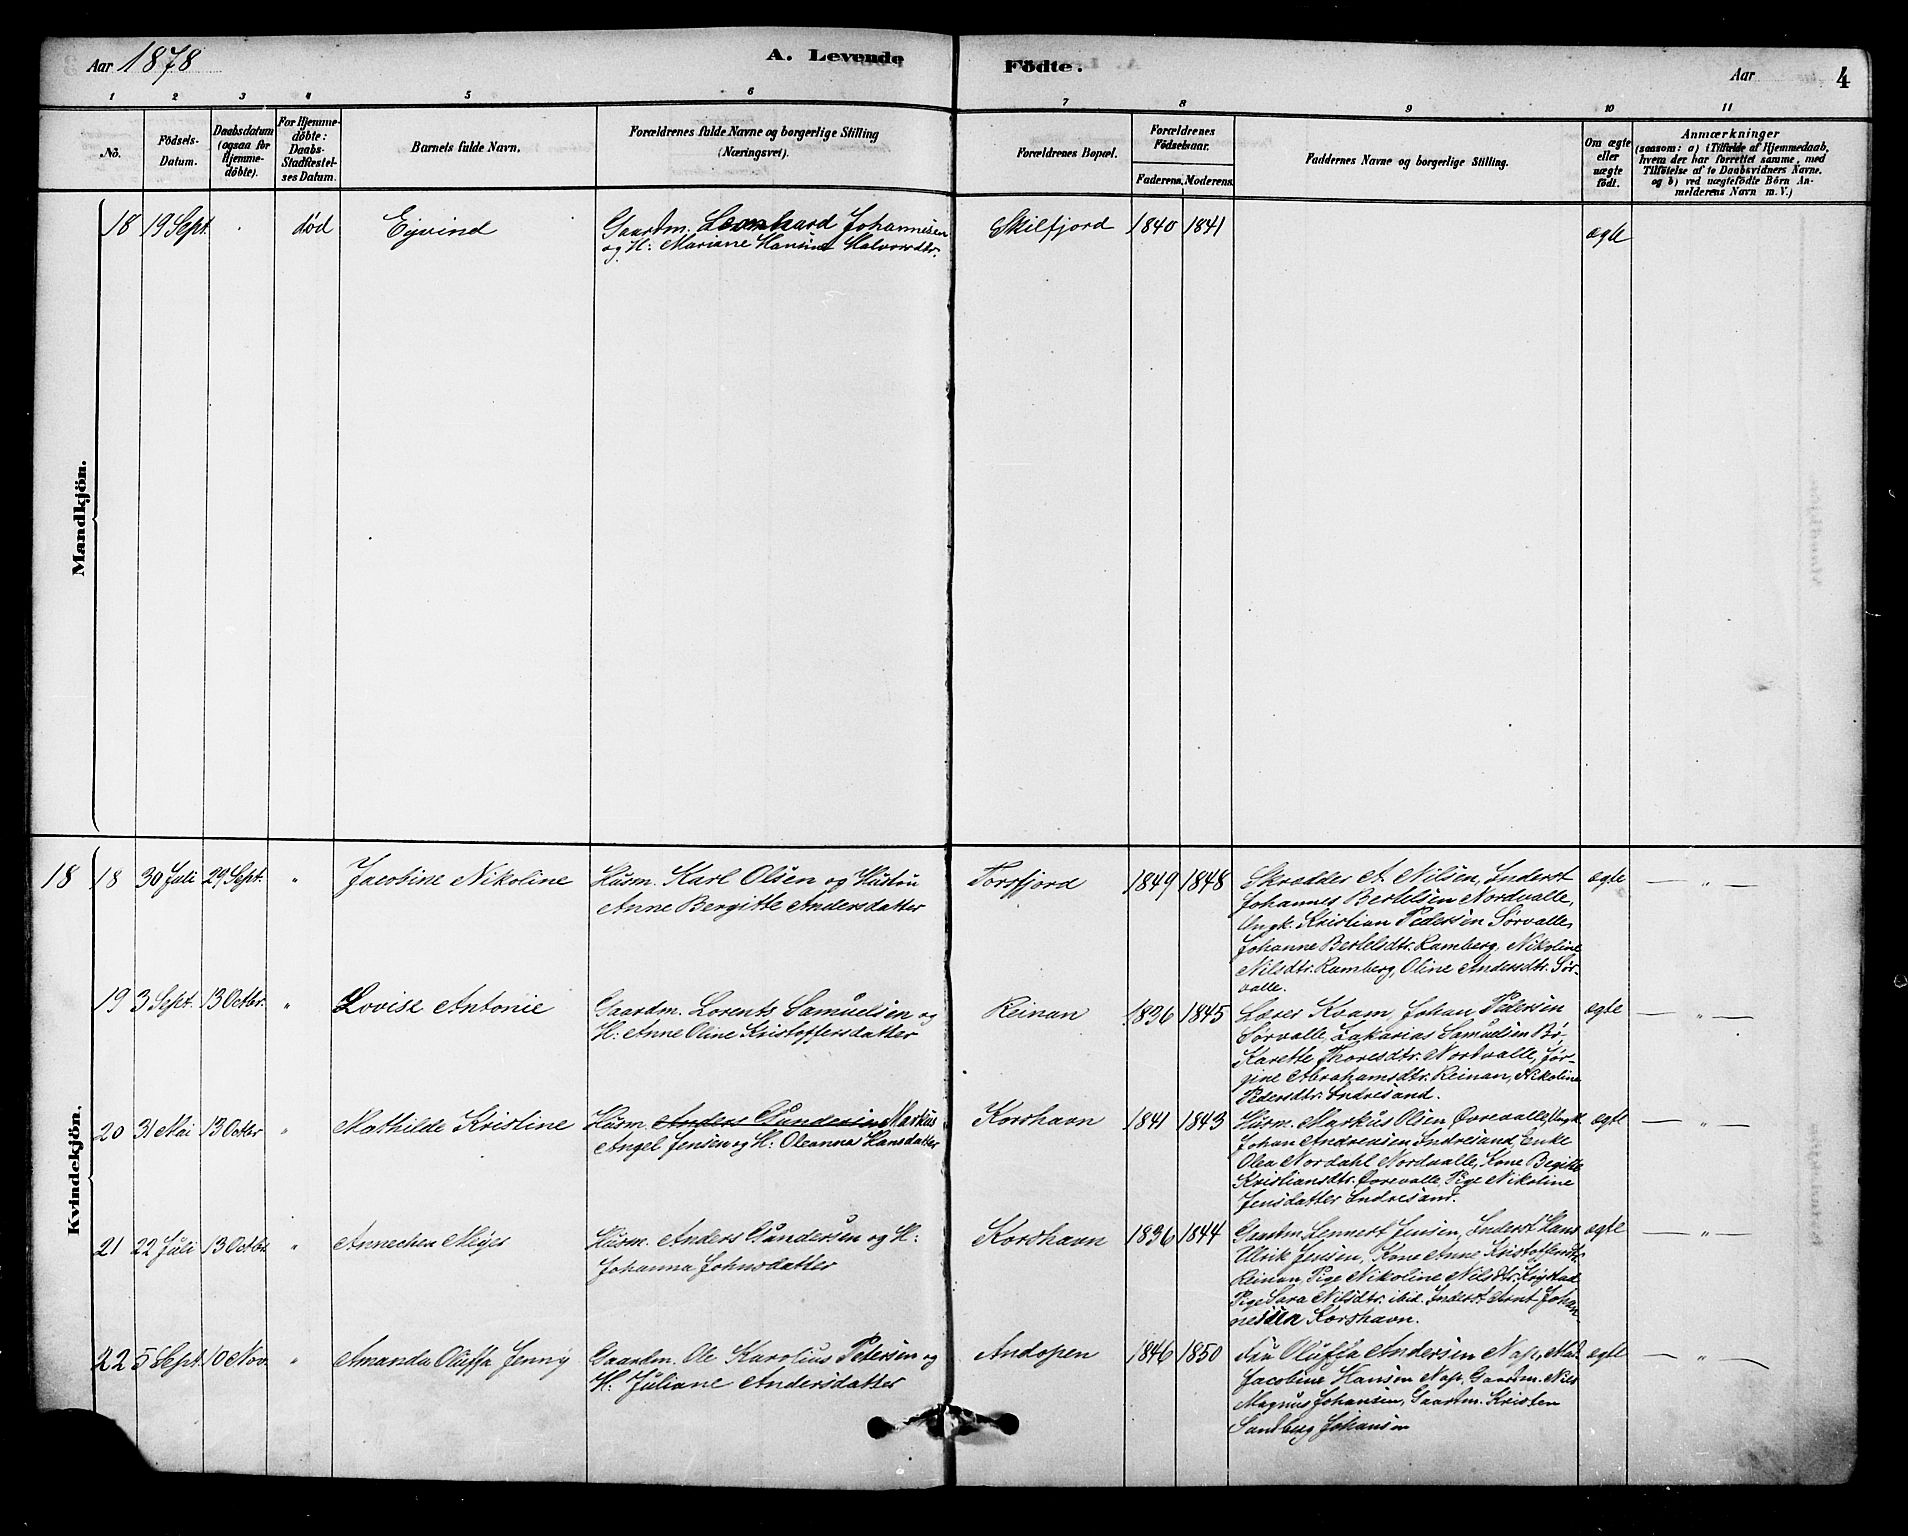 Aar 1878
A. Levende Födte.
Aar
4
1 2 3 4 5 6 7 8 9 10 11
No.
Födsels-
Datum.
Daabsdatum
(ogsaa for
Hjemme-
döbte).
For Hjemme-
döbte:
Daabs-
Stadfæstel-
ses Datum.
Barnets fulde Navn.
Forældrenes fulde Navne og borgerlige Stilling
(Næringsvei).
Forældrenes Bopæl.
Forældrenes
Födselsaar.
Faderens. Moderens.
Faddernes Navne og borgerlige Stilling.
Om ægte
eller
uægte
födt.
Anmærkninger
(saasom: a) i Tilfælde af Hjemmedaab,
hvem der har forrettet samme, med
Tilföielse af to Daabsvidners Navne.
og b) ved uægtefödte Börn An-
melderens Navn m. V.)
Mandkjön.
18 19 Sept. død Ejvind
Gaardm. Leonhard Johannesen
og H: Mariane Hansine Halvorsdtr.
Skilfjord 1840 1841 ægte
Kvindekjön.
18
18 30 Juli 29 Sept. " Jacobine Nikoline
Husm. Karl Olsen og Hustru
Anne Bergitte Andersdatter
Torsfjord 1849 1848
Skrædder A. Nilsen, Inderst
Johannes Bertelsen Nordvalle,
Ungk. Kristian Pedersen Sørvalle,
Johanne Bertelsdtr. Ramberg, Nikoline
Nilsdtr. Ramberg, Oline Andersdtr. Sør-
valle.
ægte — " —
19 3 Sept. 13 Octbr. " Lovise Antonie
Gaardm. Lorents Samuelsen og
H: Anne Oline Kristoffersdatter
Reinan 1836 1845
Lærer Kvam, Johan Pedersen
Sørvalle, Zakarias Samuelsen Bø,
Karette Thoresdtr. Nordvalle, Jør-
gine Abrahamsdtr. Reinan, Nikoline
Pedersdtr. Indresand.
ægte — " —
20 31 Mai 13 Octbr " Mathilde Kristine
Husm. Anders Gundersen Markus
Angel Jensen og H: Oleanna Hansdatter
Korshavn 1841 1843
Husm. Markus Olsen Øvrevalle, Ungk.
Johan Andreasen Indresand, Enke
Olea Nordahl Nordvalle, Kone Begitte
Kristiansdtr. Øvrevalle, Pige Nikoline
Jensdatter Indresand.
ægte — " —
21 22 Juli 13 Octbr " Annechen
Husm. Anders Gundersen og H:
Johanna Johnsdatter
Korshavn 1836 1844
Gaardm. Lennert Jensen, Inderst Hans
Ulrik Jensen, Kone Anne Kristoffersdtr.
Reinan, Pige Nikoline Nilsdtr. Krystad
Pige Sara Nilsdtr. ibid. Inderst Arnt Johan-
nessen Korshavn.
ægte — " —
22 5 Sept. 10 Nov. " Amanda Oluffa Jenny
Gaardm. Ole Karolius Petersen og
H: Juliane Andersdatter
Andopen 1846 1850
Fru Oluffa Andersen Nap, Mad.
Jacobine Hansen Nap, Gaardm. Nils
Magnus Johansen, Gaardm. Kristen
Sandberg Johansen
ægte — " —